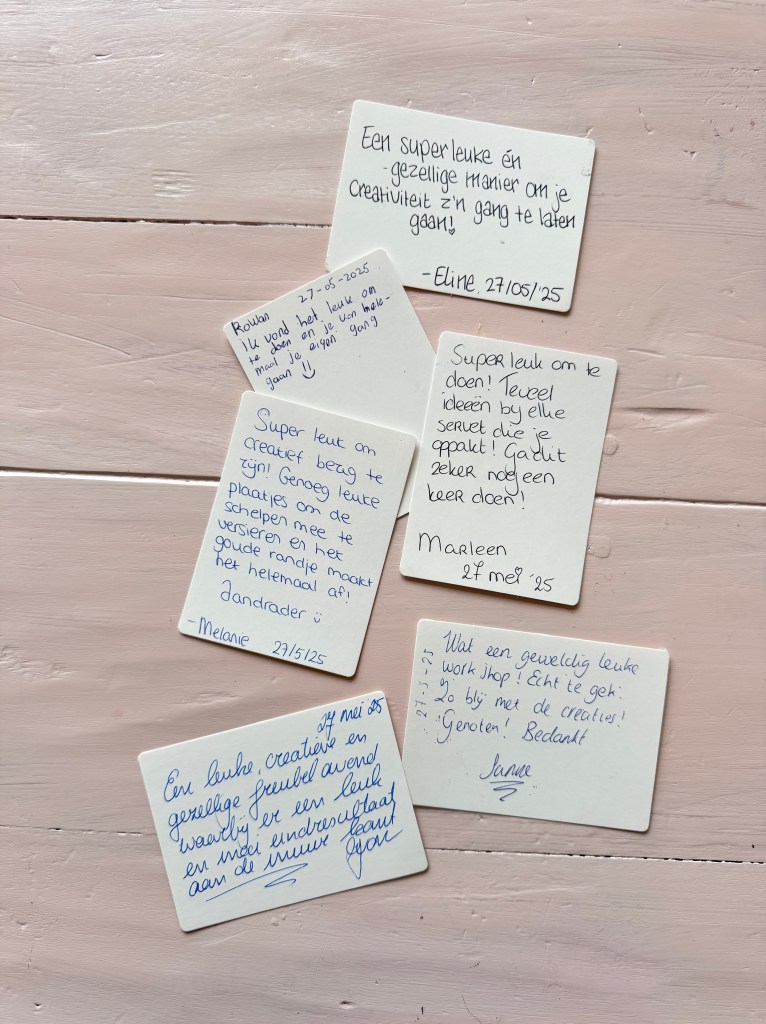 Een superleuke én
gezellige manier om je
Creativiteit z'n gang te laten
gaan!
-Eline. 27/05/'25
Rowan 27-05-2025
ik vond het leuk om
te doen en je kon hele-
maal je eigen gang
gaan
Super leuk om te
doen! Teveel
ideeën bij elke
servet die je
oppakt! Ga dit
zeker nog een
keer doen!
Marleen
27 mei '25
Super leuk om
creatief bezig te
zijn! Genoeg leuke
plaatjes om de
schelpen mee te
versieren en het
goude randje maakt
het helemaal af!
Aandrader
-Melanie 27/5/25
Wat een geweldig leuke
workshop! Echt te gek.
Zo blij met de creaties!
Genoten! Bedankt
27-5-25
27 mei 25
Een leuke, creatieve en
gezellige freubel avond
waarbij er een leuk
en mooi eindresultaat
aan de